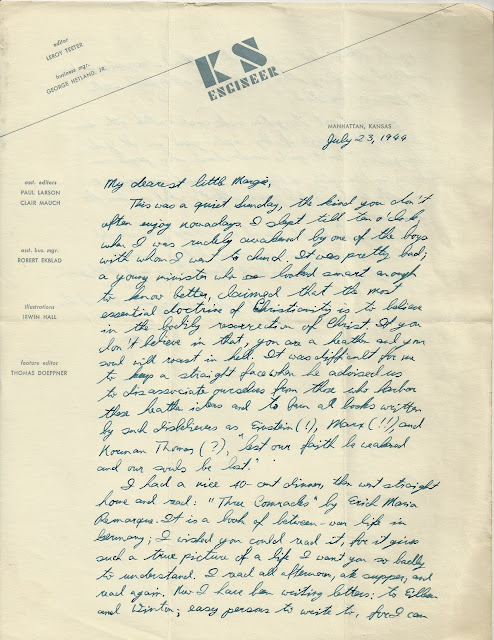 editor
LEROY TEETER
business mgr.
GEORGE HETLAND, JR.
KS
ENGINEER
MANHATTAN, KANSAS
July 23, 1944
asst. editors
PAUL LARSON
CLAIR MAUCH
asst. bus. mgr.
ROBERT EKBLAD
illustrations
IRWIN HALL
feature editor
THOMAS DOEPPNER
My dearest little Margie,
This was a quiet Sunday, the kind you don't
often enjoy nowadays. I slept till ten o'clock,
when I was rudely awakened by one of the boys
with whom I went to church. It was pretty bad;
a young minister who looked smart enough
to know better, claimed that the most
essential doctrine of Christianity is to believe
in the bodily resurrection of Christ. If you
don't believe in that, you are a heathen and your
soul will roast in hell. It was difficult for me
to keep a straight face when he advised us
to disassociate ourselves from those who harbor
these heathen ideas and to burn all books written
by such disbelievers as Einstein (!), Marx (!!) and
Norman Thomas (?), "lest our faith be weakened
and our souls be lost."
I had a nice 40-cent dinner, then went straight
home and read: "Three Comrades" by Erich Maria
Remarque. It is a book of between-war life in
Germany; I wished you could read it, for it gives
such a true picture of a life I want you so badly
to understand. I read all afternoon, ate supper, and
read again. Now I have been writing letters: to Eileen
and Winton; easy persons to write to, for I can